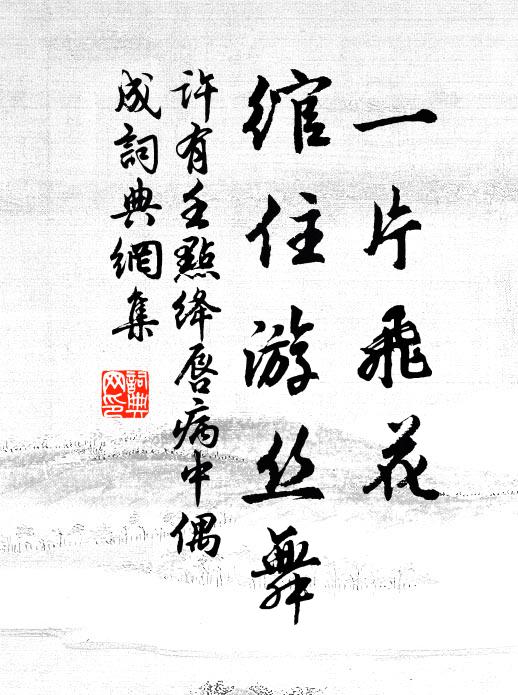 一片飛花
綰住游丝舞
許有壬點絳唇病中偶
成詞典網集
詞典
网印